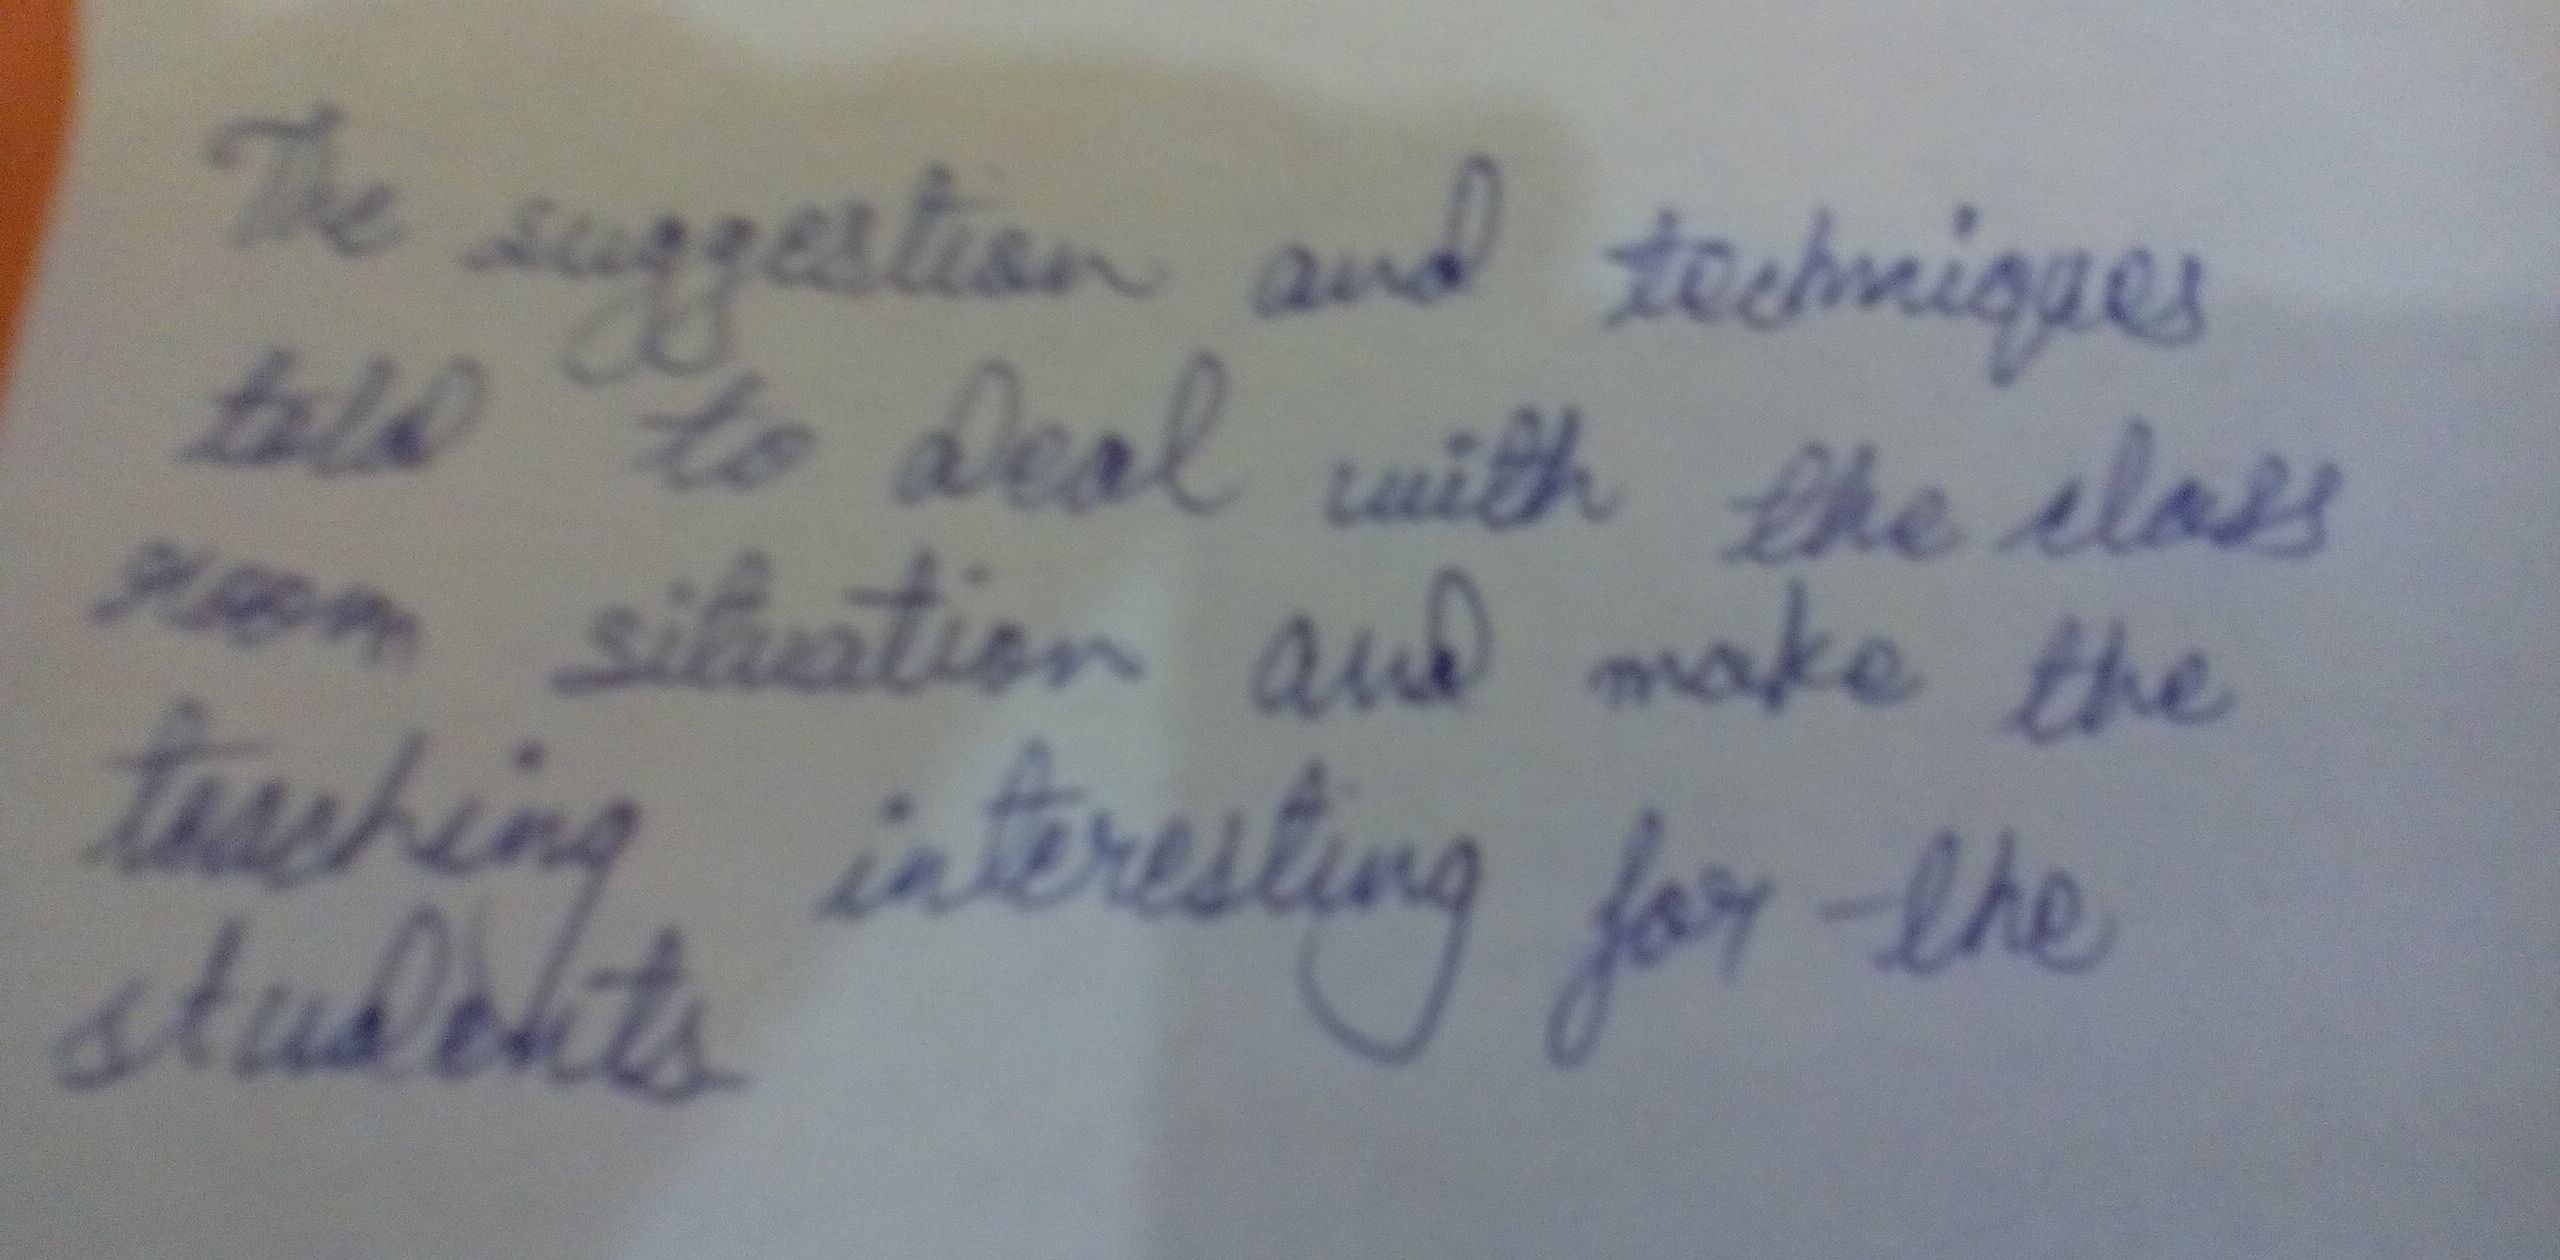 The suggestion and techniques
told to deal with the class
room situation and make the
teaching interesting for the
students